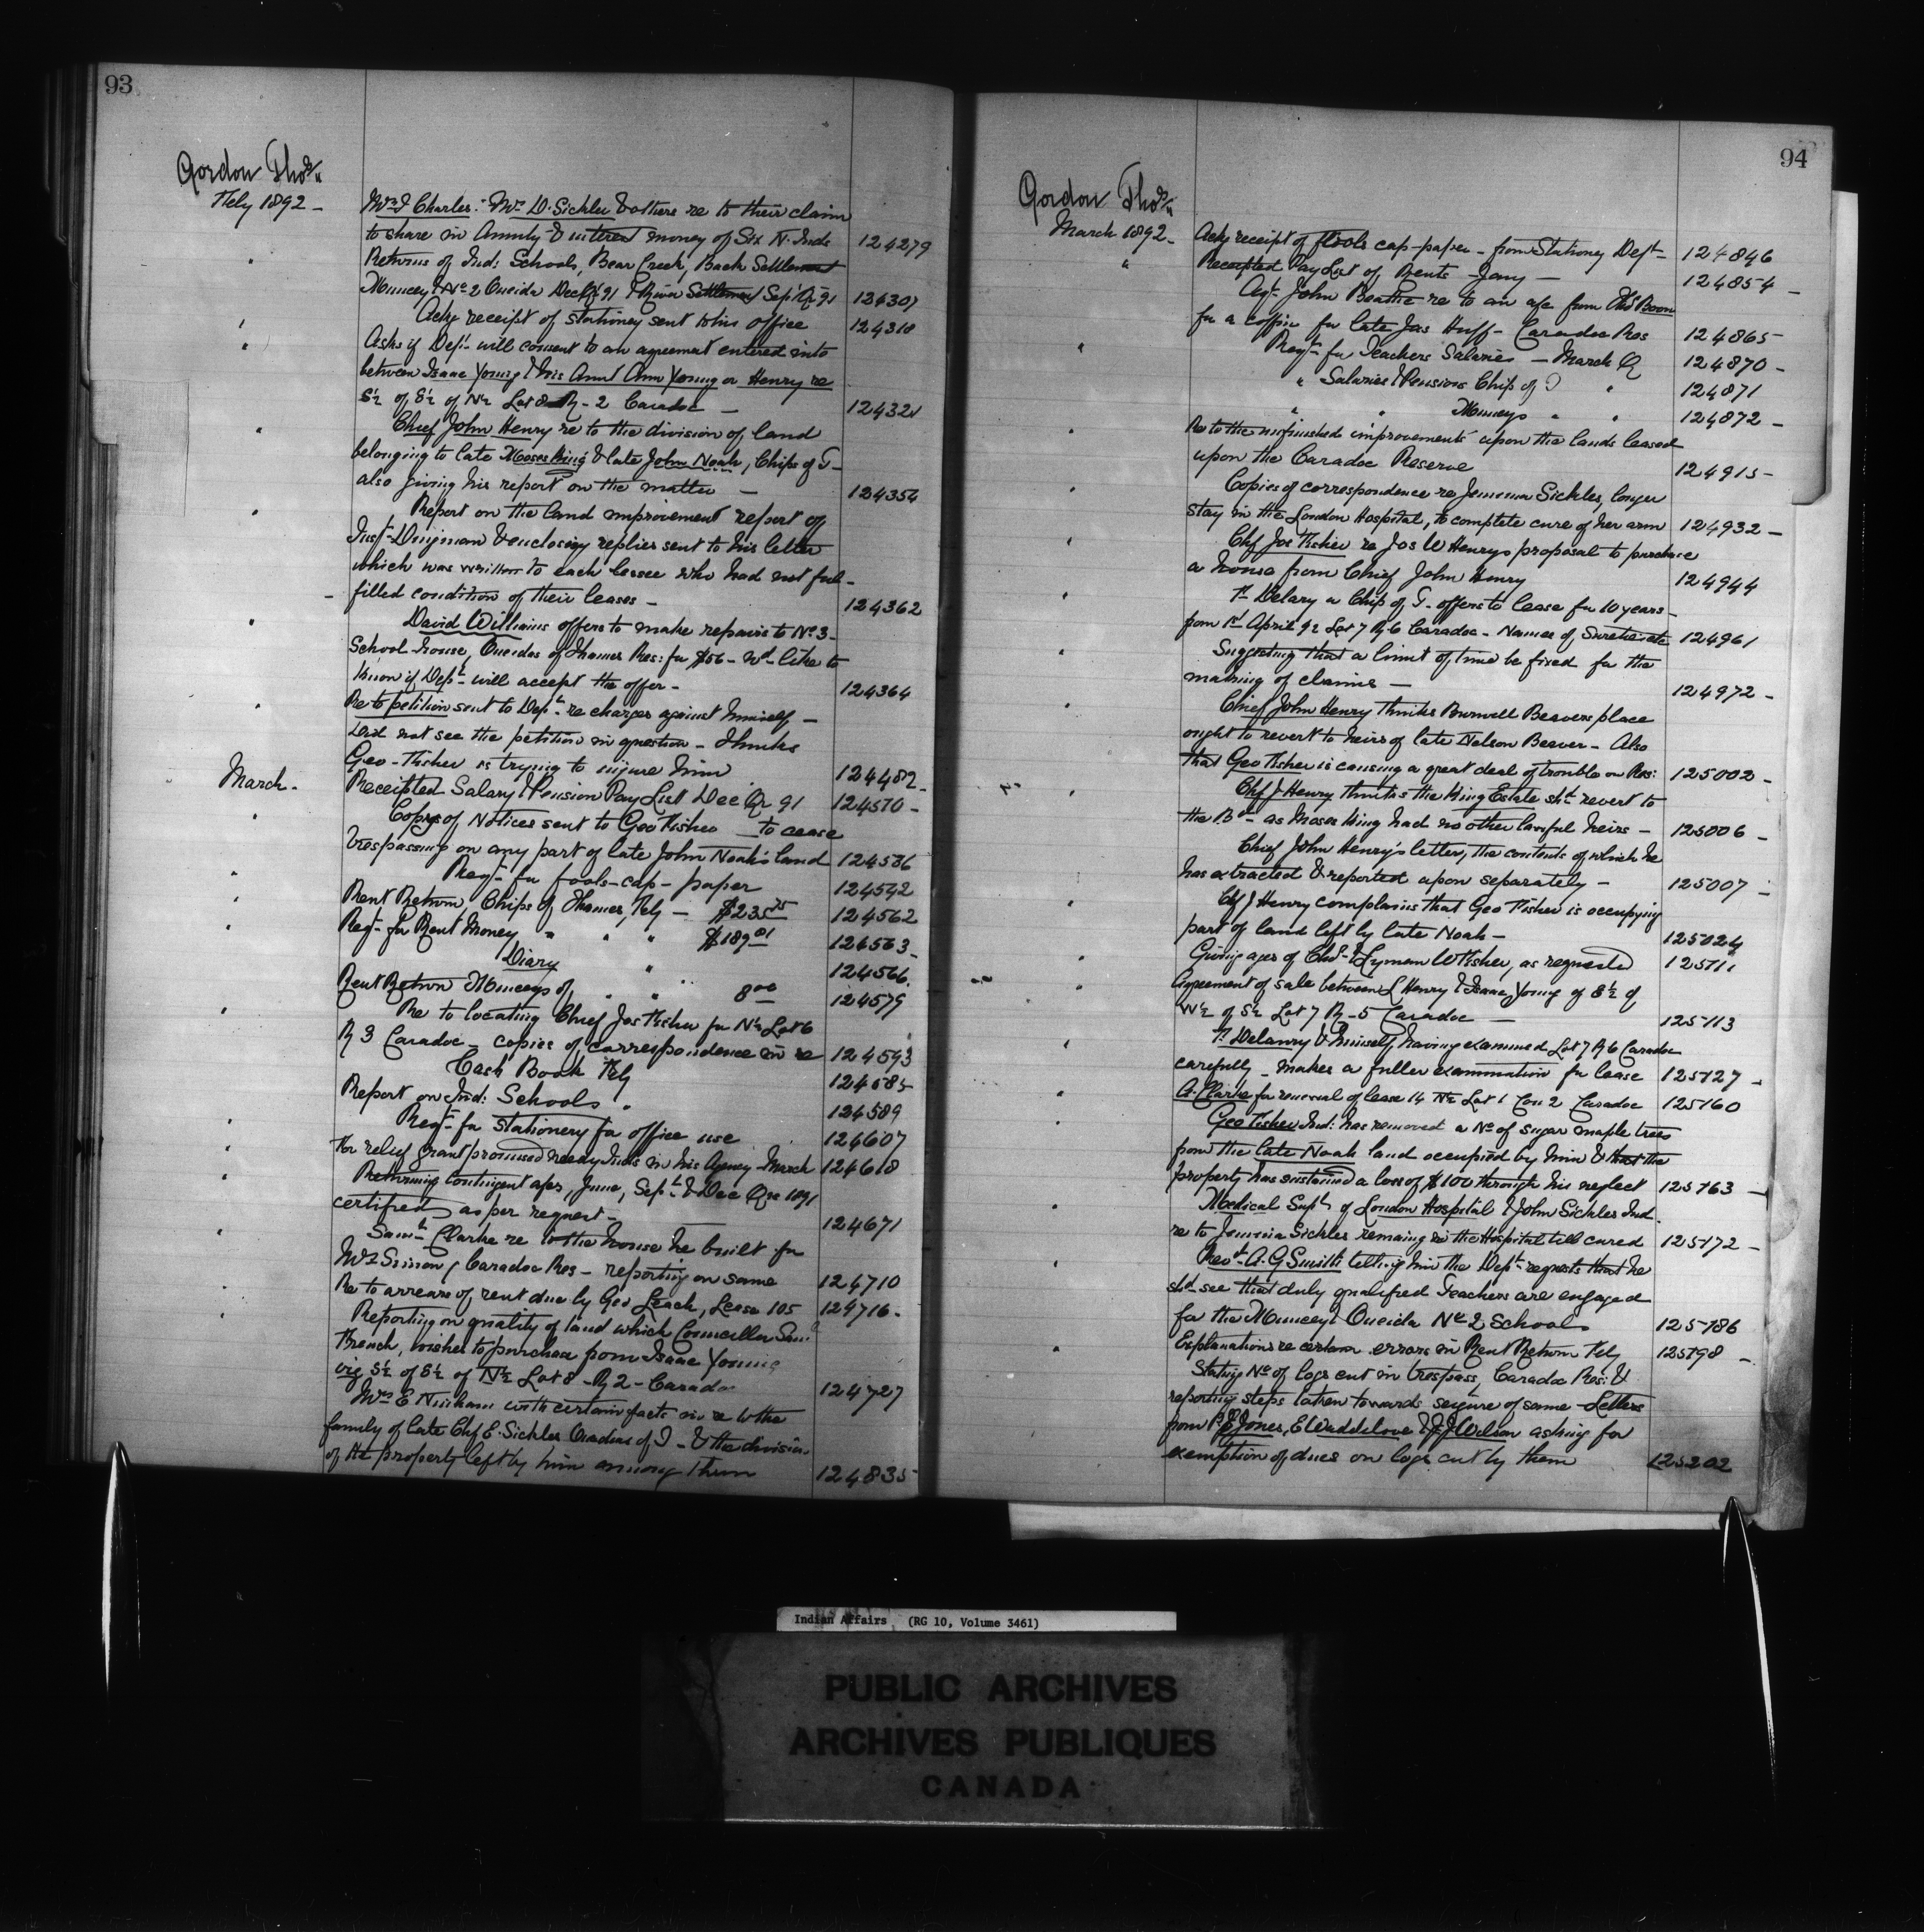 93
Gordon Thos
Feby 1892 -
Mrs J Charles: Mrs D. Sickles & others re to their claim
to share in Annuity & interest money of Six N. Inds 124279
Returns of Ind: Schools, Bear Creek, Back Settlement
Muncey & No 2 Oneida Dec Qr 91 & River Settlement Sep Qr 91 124307
Ackg receipt of stationey sent to his office 124318
Asks if Dept. will consent to an agreement entered into
between Isaac Young & his Aunt Ann Young or Henry re
S½ of S½ of N½ Lot 8 R-2 Caradoc - 124321
Chief John Henry re to the division of land
belonging to late Moses King & late John Noah, Chips of T-
also giving his report on the matter - 124354
Report on the land improvement report of
Insp. Dingman & enclosing replies sent to his letter
which was written to each lessee who had not ful-
filled condition of their leases - 124362
David Williams offers to make repairs to No 3-
School-house, Oneidas of Thames Res: for $56 - wd like to
know if Dept. will accept the offer - 124364
Re to petition sent to Dept. re charges against himself -
Did not see the petition in question - Thinks
Geo Fisher is trying to injure him 124482-
March - Receipted Salary & Pension Pay List Dec Qr 91 124510 -
Copys of Notices sent to Geo Fisher to cease
trespassing on any part of late John Noah's land 124536
Reqn for fools-cap-paper 124542
Rent Return Chips of Thames, Feby - $235 75 124562
Reqn for Rent Money " " " $189 01 124563-
Diary " 124566.
Rent Return Munceys of " " 8 00 124579
Re to locating Chief Jos Fisher for N½ Lot 6
R 3 Caradoc - copies of correspondence in re 124593
Cash Book Feby 124585
Report on Ind: Schools " 124589
Reqn for stationery for office use 124607
For relief grant promised needy Inds in his Agency March 124618
Returning Contingent a/cs, June, Sept. & Dec Qrs 1891
certified as per request - 124671
Saml. Clarke re to the house he built for
Mrs Simon, Caradoc Res - reporting on same 124710
Re to arrears of rent due by Geo Leach, Lease 105 124716.
Reporting on quality of land which Councillor Saml
French, wishes to purchase from Isaac Young
viz S½ of S½ of N½ Lot 8 - R 2 - Caradoc 124727
Mrs E Ninham with certain facts in re to the
family of late Chf E. Sickles Oneidas of T - & the division
of the property left by him among them 124835
94
Gordon Thos
March 1892 - Ackg receipt of fools cap-paper - from Stationey Dept 124846
Receipted Pay List of Rents - Jany - 124854 -
Agt John Beattie re to an a/c from Boon
for a coffin for late Jas Huff - Caradoc Res 124865-
Reqn for Teachers Salaries - March Q 124870 -
" Salaries & Pensions Chips of T " 124871
" " Munceys " " 124872 -
Re to the unfinished improvements upon the lands leased
upon the Caradoc Reserve 124915-
Copies of correspondence re Jemima Sickles, longer
stay in the London Hospital, to complete cure of her arm 124932 -
Chf Jos Fisher re Jos W Henrys proposal to purchase
a house from Chief John Henry 124944
F. Delary a Chip of T. offers to lease for 10 years -
from 1st April 92 Lot 7 R-6 Caradoc - Names of Sureties etc 124961
Suggesting that a limit of time be fixed for the
making of claims - 124972 -
Chief John Henry thinks Burwell Beavers place
ought to revert to heirs of late Nelson Beaver - Also
that Geo Fisher is causing a great deal of trouble on Res: 125002 -
Chf J Henry thinks the King Estate shd revert to
the Bd - as Moses King had no other lawful heirs - 125006 -
Chief John Henry's letter, the contents of which he
has extracted & reported upon separately - 125007 -
Chf J Henry complains that Geo Fisher is occupying
part of land left by late Noah - 125024
Giving ages of Chas & Lyman W Fisher, as requested 125111
Agreement of sale between L Henry & Isaac Young of S½ of
W½ of S½ Lot 7 R-5 Caradoc - 125113
F. Delanry & himself having examined Lot 7 R 6 Caradoc
carefully - makes a fuller examination for lease 125127 -
A. Clarke for renewal of lease 14 N½ Lot 1 Con 2 Caradoc 125160
Geo Fisher Ind: has removed a No of sugar maple trees
from the late Noah land occupied by him & that the
property has sustained a loss of $100 through his neglect 125163 -
Medical Supt of London Hospital & John Sickles Ind.
re to Jemima Sickles remaing in the Hospital till cured 125172 -
Revd. A. G Smith telling him the Dept. requests that he
shd see that duly qualified Teachers are engaged
for the Muncey & Oneida No 2 Schools 125186
Explanations re certain errors in Rent Return Feby 125198 -
Stating No of logs cut in trespass, Caradoc Res: &
reporting steps taken towards seizure of same - Letters
from P. E Jones, E Waddilove & J. J Wilson asking for
exemption of dues on logs cut by them 125202
Indian Affairs (RG 10, Volume 3461)
PUBLIC ARCHIVES
ARCHIVES PUBLIQUES
CANADA